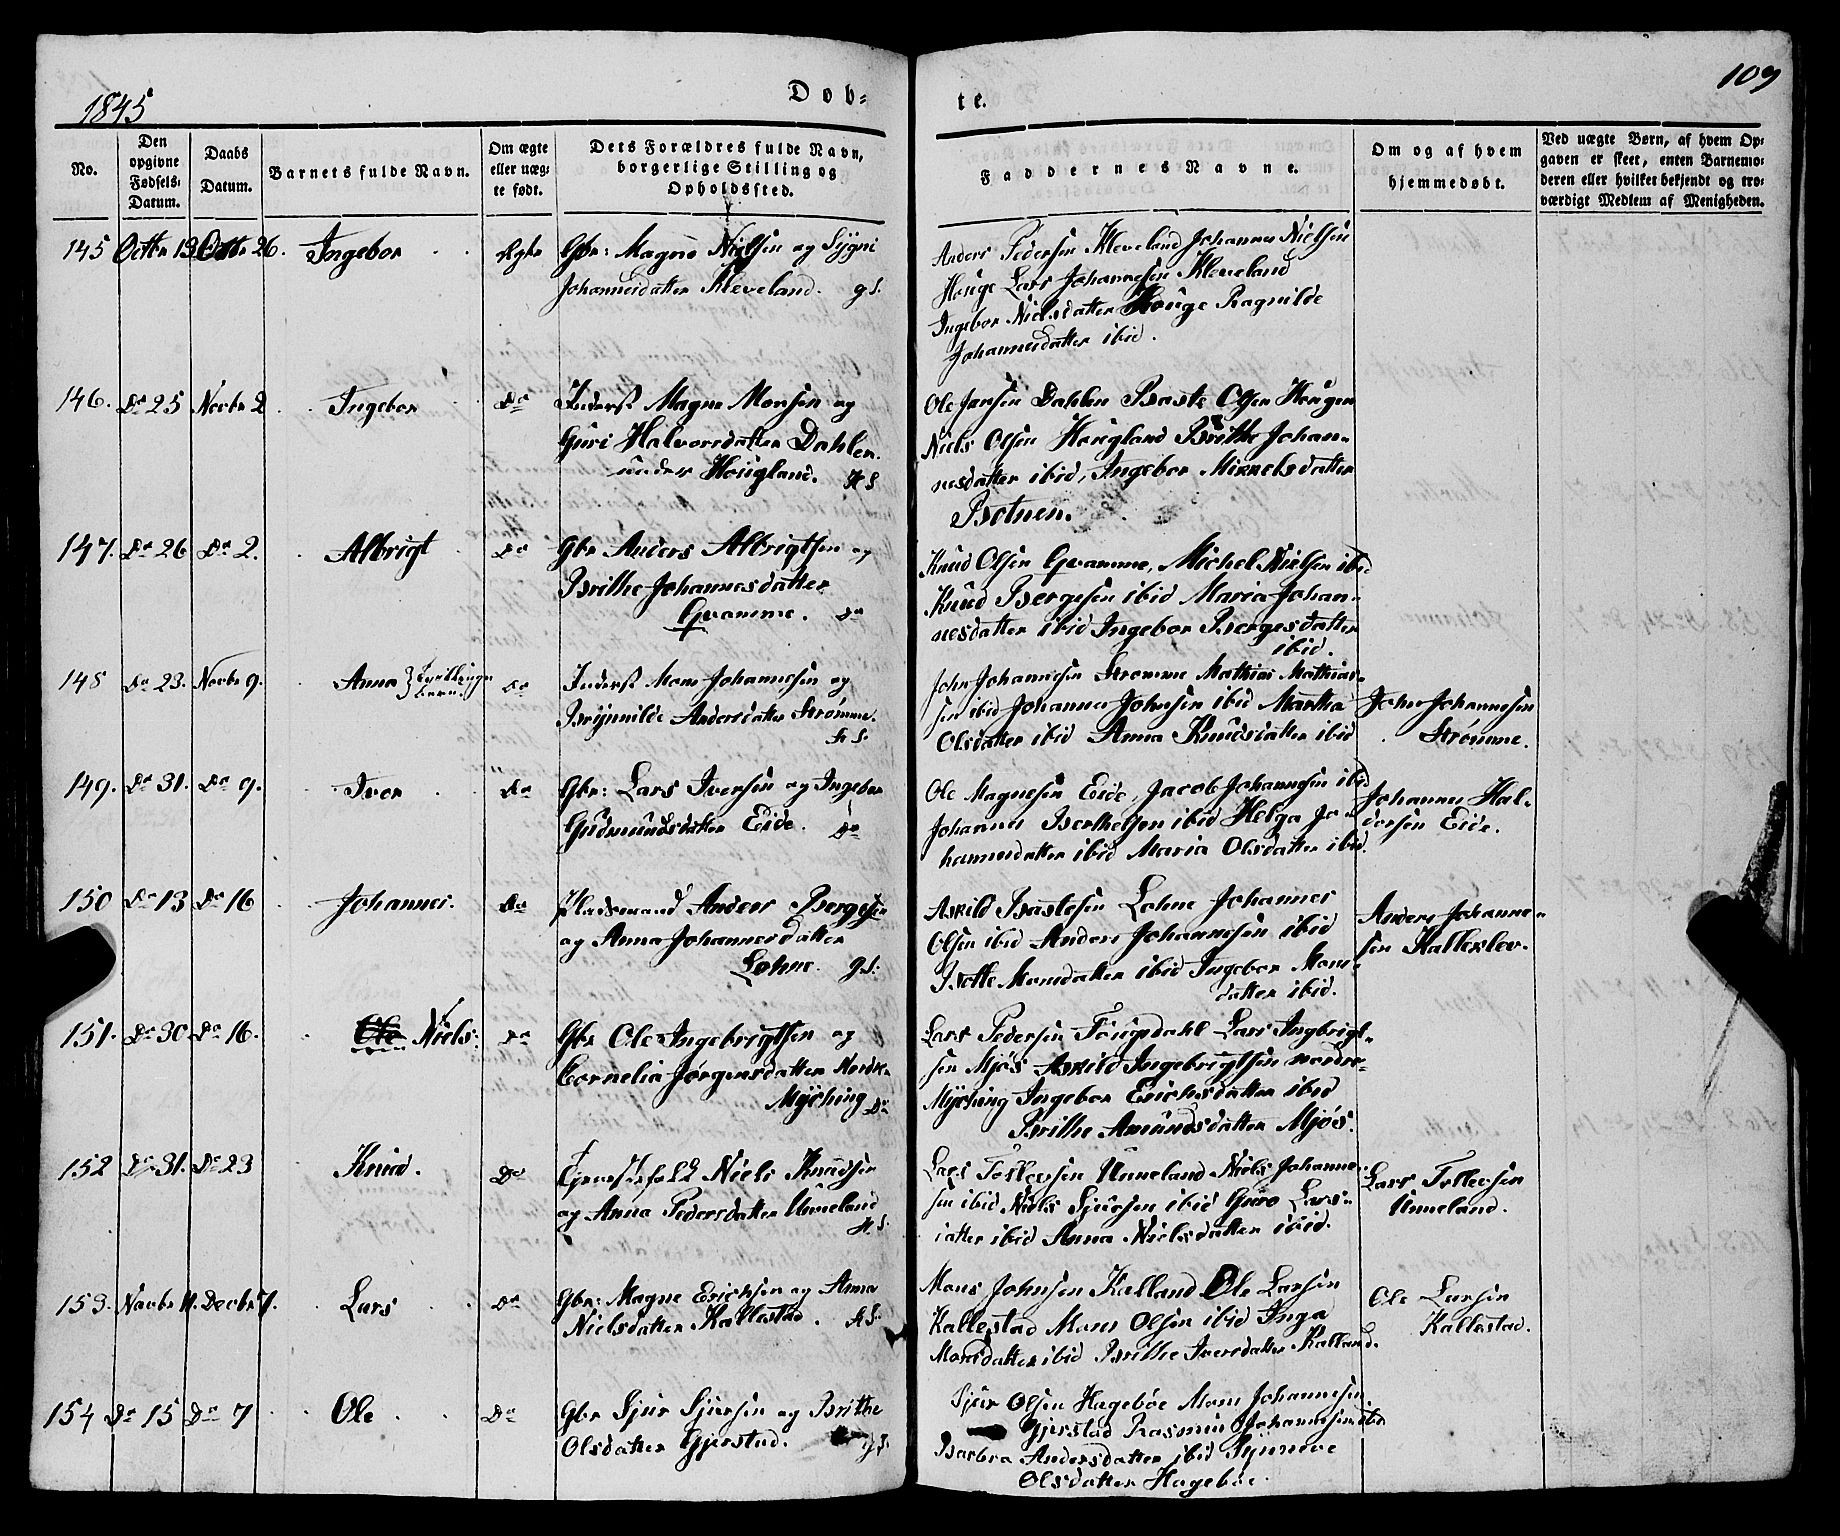 1845
Døb-
te.
109
No.
Den opgivne Fødsels-Datum.
Daabs Datum.
Barnets fulde Navn.
Om ægte eller uægte født.
Dets Forældres fulde Navn, borgerlige Stilling og Opholdssted.
Faddernes Navne.
Om og af hvem hjemmedøbt.
Ved uægte Børn, af hvem Opgaven er skeet, enten Barnemoderen eller hvilket bekjendt og troværdigt Medlem af Menigheden.
145 Octbr 13 Octbr 26. Ingebor Ægte
Gbr: Magne Nielsen og Sygni
Johannesdatter Kleveland. gS.
Anders Pedersen Kleveland Johannes Nielsen
Houge Lars Johannesen Kleveland
Ingebor Nielsdatter Houge Ragnilde
Johannesdatter ibid.
146. Do 25 Novbr 2 Ingebor Do
Inderst Magne Monsen og
Guri Halvorsdatter Dahlen
under Hougland. HS
Ole Jensen Dahlen Baste Olsen Hougen
Niels Olsen Hougland Brithe Johan-
nesdatter ibid, Ingebor Mikkelsdatter
Botnen.
147. Do 26 Do 2. Albrigt Do
Gbr Anders Albrigtsen og
Brithe Johannesdatter
Qvamme. Do
Knud Olsen Qvamme, Michel Nielsen ibid
Knud Bergesen ibid Maria Johan-
nesdatter ibid Ingebor Bergesdatter
ibid.
148 Do 23. Novbr 9. Anna } Tvillinge Do
Inderst Mons Johannesen og
Brynnilde Andersdatter Strømme.
HS.
John Johannesen Strømme Mathias Mathias-
sen ibid Johannes Johnsen ibid Martha
Olsdatter ibid Anna Knudsdatter ibid
John Johannesen
Strømme.
149. Do 31. Do 9. Iver Do
Gbr: Lars Iversen og Ingebor
Gudmundsdatter Eide. Do
Ole Magnesen Eide, Jacob Johannesen ibid
Johannes Berthelsen ibid Helga Jo-
hannesdatter ibid Maria Olsdatter ibid.
Johannes Hal-
dorsen Eide.
150 Do 13 Do 16 Johannes. Do
Pladsmand Anders Bergesen
og Anna Johannesdatter
Lohne. gS.
Askild Bastesen Lohne Johannes
Olsen ibid Anders Johannesen ibid
Brithe Monsdatter ibid Ingebor Mons-
datter ibid.
Anders Johanne-
sen Halleslev.
151. Do 30 Do 16. Ole Niels. Do
Gbr Ole Ingebrigtsen og
Cornelia Jørgensdatter Nordre
Myching Do
Lars Pedersen Tougdahl Lars Ingbrigt-
sen Mjøs Askild Ingebrigtsen nordre
Myching Ingebor Erichsdatter ibid
Brithe Amundsdatter Mjøs.
152 Do 31. Do 23 Knud. Do
Tjenestefolk Niels Knudsen
og Anna Pedersdatter Unneland
HS.
Lars Tollevsen Unneland Niels Johanne-
sen ibid Niels Sjursen ibid Guro Lars-
datter ibid Anna Nielsdatter ibid.
Lars Tollevsen
Unneland.
153. Novbr 11. Decbr 7. Lars Do
Gbr: Magne Erichsen og Anna
Nielsdatter Kallestad. HS.
Mons Johnsen Kalland Ole Larsen
Kallestad Mons Olsen ibid Inga
Monsdatter ibid Brithe Iversdatter Kalland.
Ole Larsen
Kallestad.
154 Do 15 Do 7 Ole Do
Gbr Sjur Sjursen og Brithe
Olsdatter Gjerstad. gS.
Sjur Olsen Hagebøe Mons Johannesen
Gjerstad Rasmus Johannesen ibid
Barbra Andersdatter ibid Synneve
Olsdatter Hagebøe.